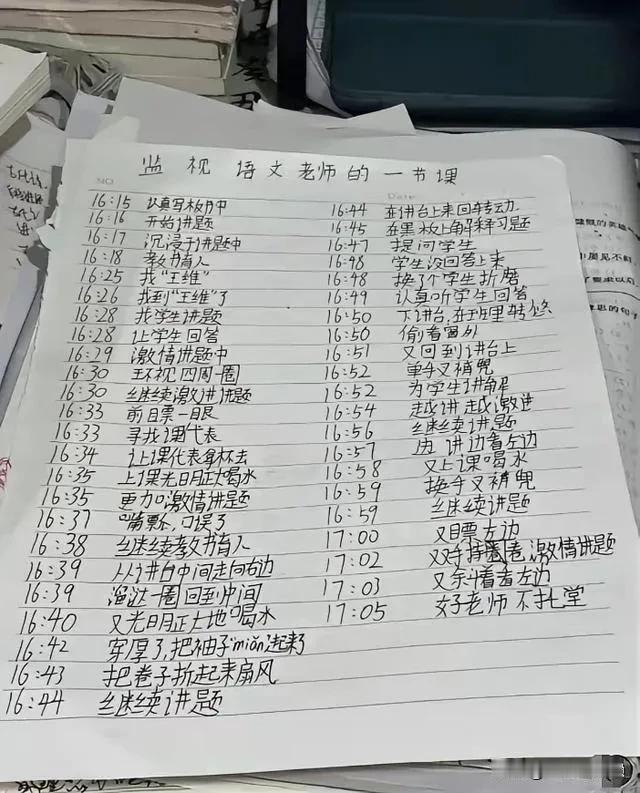 监视语文老师的一节课
NO
Date
16:15 认真写板书中
16:16 开始讲题
16:17 沉浸于讲题中
16:18 教书育人
16:25 找"王维"
16:26 找到"王维"了
16:28 找学生讲题
16:28 让学生回答
16:29 激情讲题中
16:30 环视四周一圈
16:30 继续激进讲题
16:33 前目票一眼
16:33 寻找课代表
16:34 让课代表拿杯去
16:35 上课光明正大喝水
16:35 更加激情讲题
16:37 嘴票,口误了
16:38 继续教书育人
16:39 从讲台中间走向右边
16:39 溜达一圈回到中间
16:40 又光明正大地喝水
16:42 穿厚了,把袖子"miǎn"起来了
16:43 把卷子折起来扇风
16:44 继续讲题
16:44 在讲台上来回转动
16:45 在黑板上解释习题
16:47 提问学生
16:48 学生没回答上来
16:48 换个学生折磨
16:49 认真听学生回答
16:50 下讲台,在班里转悠
16:50 偷着冒火
16:51 又回到讲台上
16:52 单手叉裤兜
16:52 为学生讲解
16:54 越讲越激进
16:56 继续讲题
16:57 边讲边看左边
16:58 又上课喝水
16:59 换手叉裤兜
16:59 继续讲题
17:00 又目票左边
17:02 双手捧卷,激情讲题
17:03 又斜着看左边
17:05 好老师不扎堂